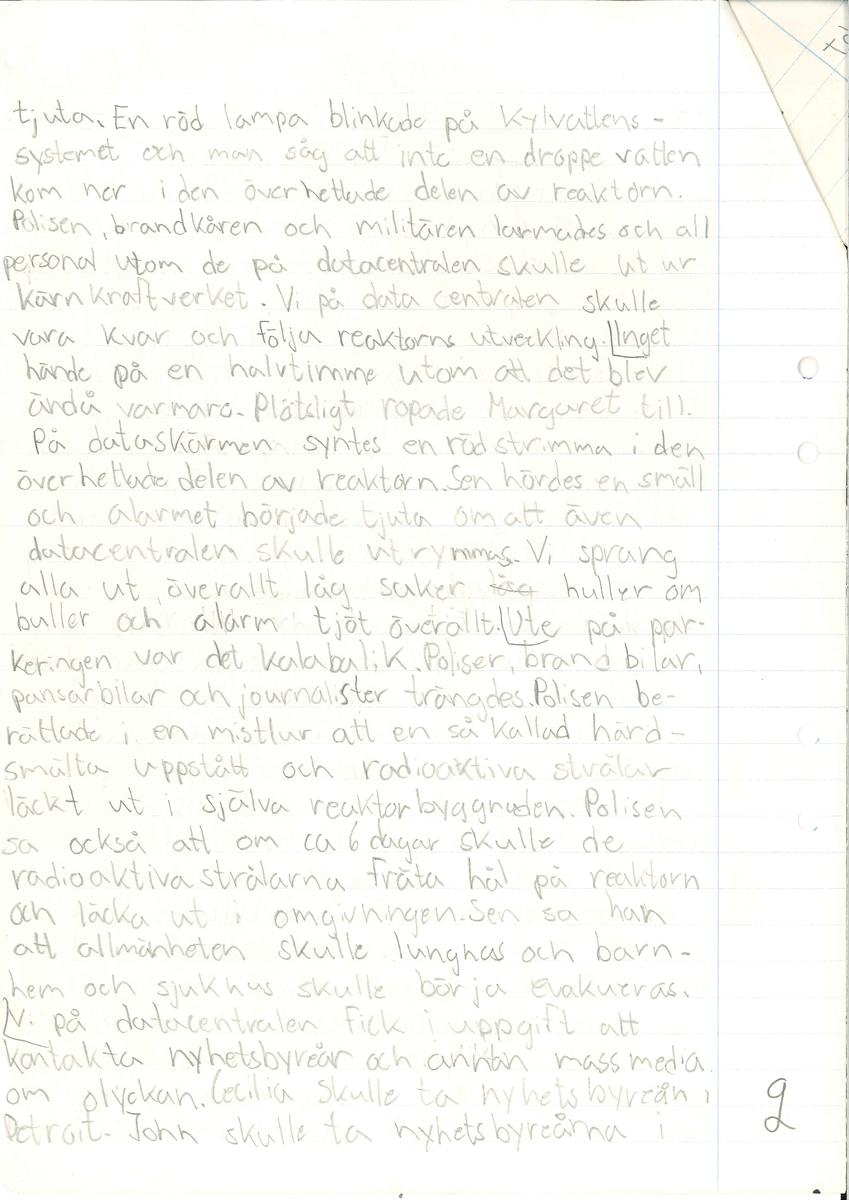 tjuta. En röd lampa blinkade på Kylvattens-
systemet och man såg att inte en droppe vatten
kom ner i den överhettade delen av reaktorn.
Polisen, brandkåren och militären larmades och all
personal utom de på datacentralen skulle ut ur
kärnkraftverket. Vi på data centralen skulle
vara kvar och följa reaktorns utveckling. Inget
hände på en halvtimme utom att det blev
ändå varmare. Plötsligt ropade Margaret till.
På dataskärmen syntes en röd strimma i den
överhettade delen av reaktorn. Sen hördes en smäll
och alarmet började tjuta om att även
datacentralen skulle utrymmas. Vi sprang
alla ut, överallt låg saker huller om
buller och alarm tjöt överallt. Ute på par-
keringen var det kalabalik. Poliser, brand bilar,
pansarbilar och journalister trängdes. Polisen be-
rättade i en mistlur att en så kallad härd-
smälta uppstått och radioaktiva strålar
läckt ut i själva reaktorbyggnaden. Polisen
sa också att om ca 6 dagar skulle de
radioaktiva strålarna fräta hål på reaktorn
och läcka ut i omgivningen. Sen sa han
att allmänheten skulle lugnas och barn-
hem och sjukhus skulle börja evakueras.
Vi på datacentralen fick i uppgift att
kontakta nyhetsbyråer och annan mass media
om olyckan. Cecilia skulle ta nyhetsbyreån i
Detroit. John skulle ta nyhetsbyreårna i
2